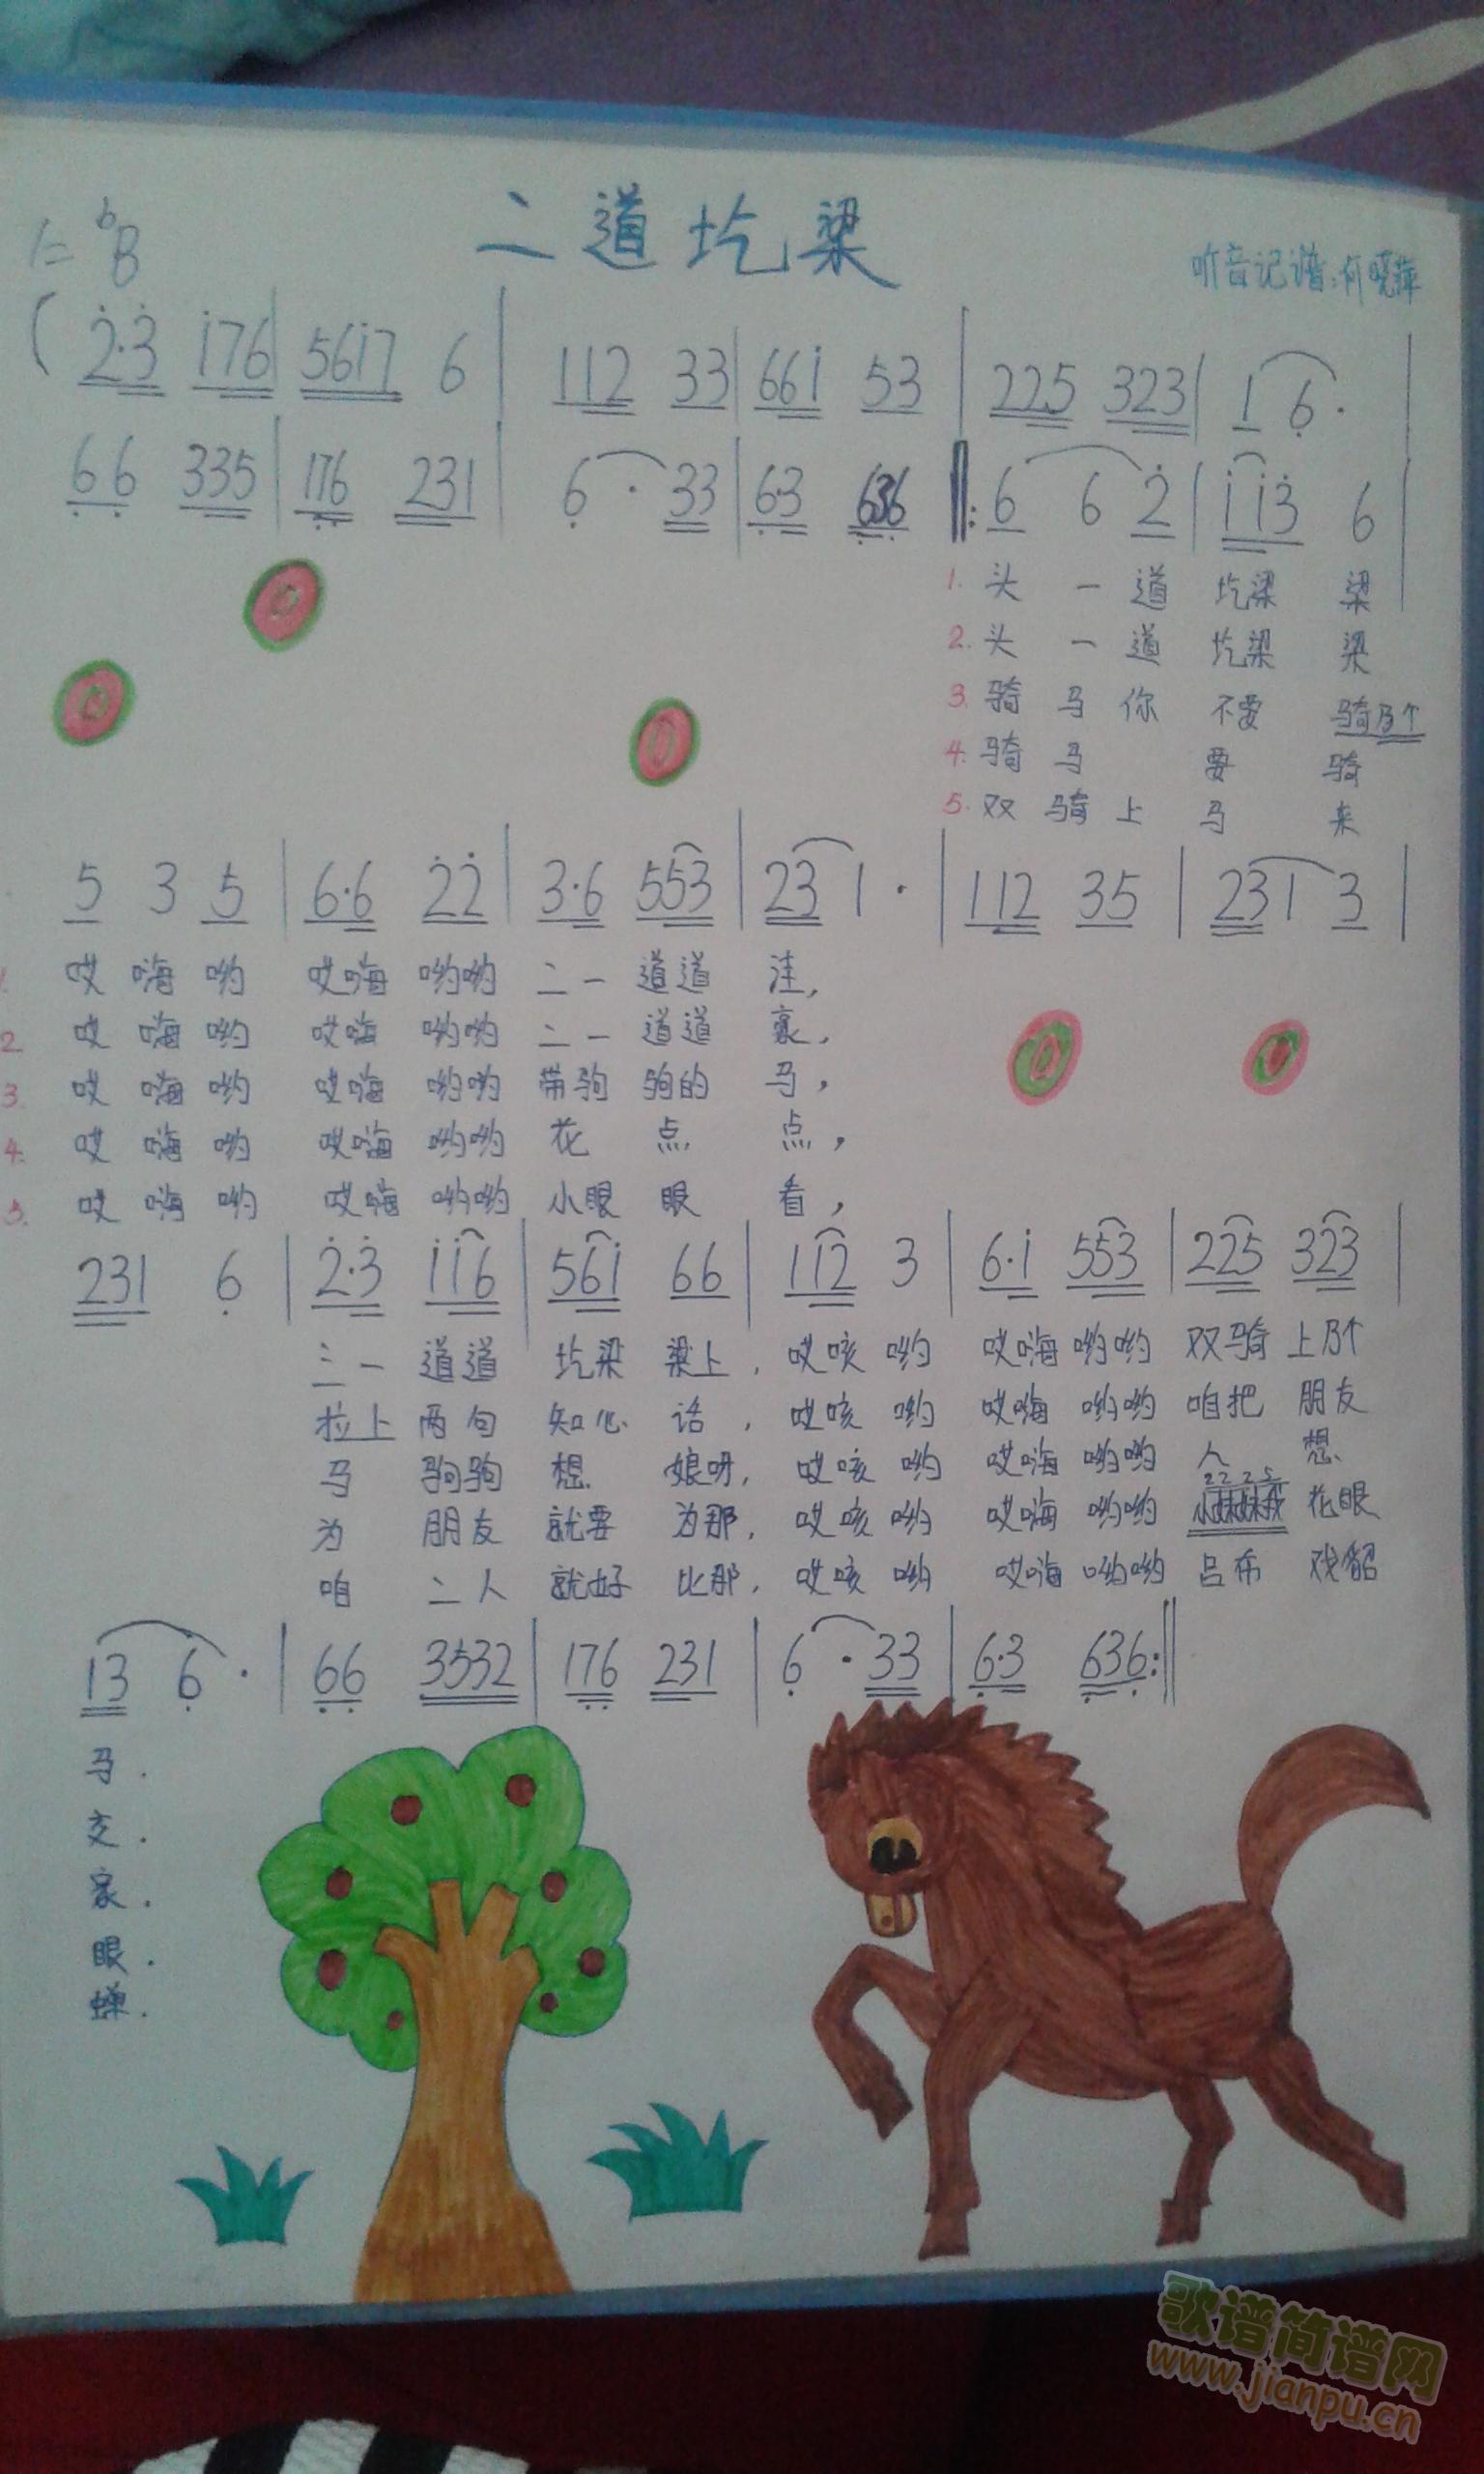 二道圪梁
1=ᵇB
听音记谱:何晓萍
( 2̇·3̇ i76 | 561̇7 6 | 112 33 | 661̇ 53 | 225 323 | 1 6̣· |
6̣6̣ 335 | 176 231 | 6̣ · 33 | 6̣·3 6̣36̣ ‖: 6 6 2̇ | 1̇1̇3̇ 6 |
1. 头 一 道 圪梁 梁
2. 头 一 道 圪梁 梁
3. 骑 马 你 不要 骑乃个
4. 骑 马 要 骑
5. 双 骑 上 马 来
5 3 5 | 6·6 2̇2̇ | 3·6 553 | 23 1 · | 112 35 | 231 3 |
1. 哎 嗨 哟 哎嗨 哟哟 二一 道道 洼,
2. 哎 嗨 哟 哎嗨 哟哟 二一 道道
3. 哎 嗨 哟 哎嗨 哟哟 带驹 驹的 马,
4. 哎 嗨 哟 哎嗨 哟哟 花 点 点,
5. 哎 嗨 哟 哎嗨 哟哟 小眼 眼 看,
231 6̣ | 2̇·3̇ 1̇1̇6 | 561̇ 66 | 112 3 | 6·1̇ 553 | 225 323 |
三一 道道 圪梁 梁上, 哎咳 哟 哎嗨 哟哟 双骑 上乃个
拉上 两句 知心 话, 哎咳 哟 哎嗨 哟哟 咱把 朋友
马 驹驹 想 娘呀, 哎咳 哟 哎嗨 哟哟 人 想
2 2 2 5
为 朋友 就要 为那, 哎咳 哟 哎嗨 哟哟 小妹妹我 花眼
咱 二人 就好 比那, 哎咳 哟 哎嗨 哟哟 吕布 戏貂
13 6̣ · | 6̣6̣ 3532 | 176 231 | 6̣ · 33 | 6̣·3 6̣36̣ :‖
马.
交.
家.
眼.
蝉.
歌谱简谱网
www.jianpu.cn